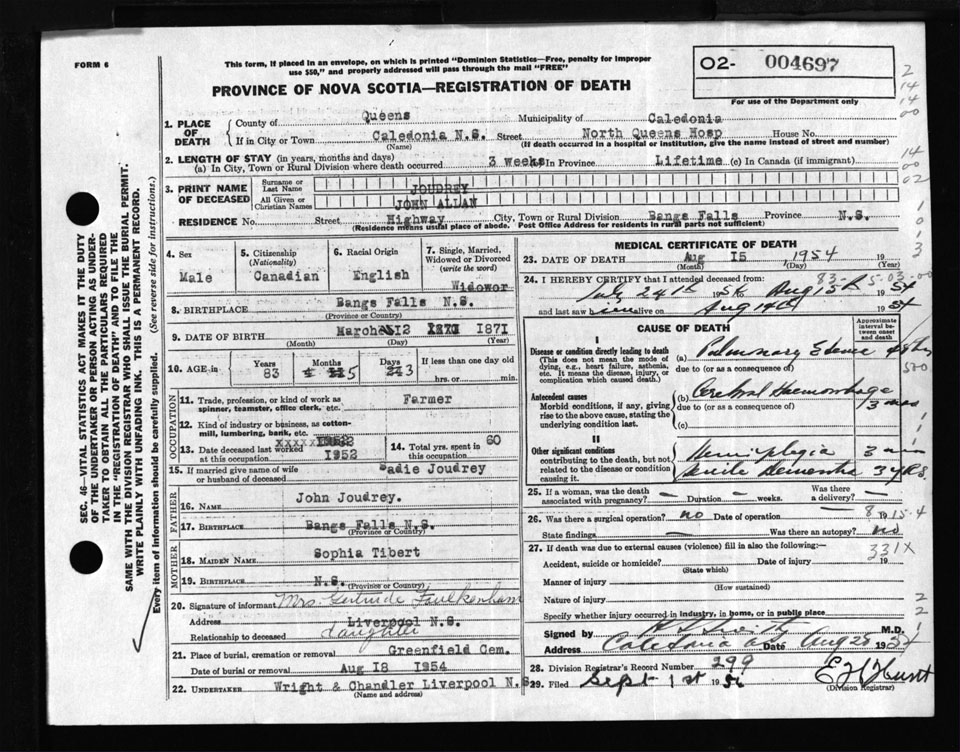 FORM 6
This form, if placed in an envelope, on which is printed "Dominion Statistics—Free, penalty for improper
use $50," and properly addressed will pass through the mail "FREE"
PROVINCE OF NOVA SCOTIA—REGISTRATION OF DEATH
02- 004697
For use of the Department only
1. PLACE OF DEATH County of Queens Municipality of Caledonia
If in City or Town Caledonia N.S. Street North Queens Hosp House No.
(Name) (If death occurred in a hospital or institution, give the name instead of street and number)
2. LENGTH OF STAY (in years, months and days)
(a) In City, Town or Rural Division where death occurred 3 weeks In Province Lifetime (c) In Canada (if immigrant)
3. PRINT NAME OF DECEASED Surname or Last Name JOUDREY
All Given or Christian Names JOHN ALLAN
RESIDENCE No. Street Highway City, Town or Rural Division Bangs Falls Province N.S.
(Residence means usual place of abode. Post Office Address for residents in rural parts not sufficient)
4. Sex Male
5. Citizenship (Nationality) Canadian
6. Racial Origin English
7. Single, Married, Widowed or Divorced (write the word) Widowor
8. BIRTHPLACE Bangs Falls N.S.
(Province or Country)
9. DATE OF BIRTH March 12 1871
(Month) (Day) (Year)
10. AGE in Years 83 Months 5 Days 3 If less than one day old
hrs. or min.
OCCUPATION
11. Trade, profession, or kind of work as spinner, teamster, office clerk, etc. Farmer
12. Kind of industry or business, as cotton-mill, lumbering, bank, etc.
13. Date deceased last worked at this occupation 1952
14. Total yrs. spent in 60
15. If married give name of wife or husband of deceased Sadie Joudrey
FATHER
16. NAME John Joudrey.
17. BIRTHPLACE Bangs Falls N.S.
(Province or Country)
MOTHER
18. MAIDEN NAME Sophia Tibert
19. BIRTHPLACE N.S.
(Province or Country)
20. Signature of informant Mrs. Gertrude Faulkenham
Address Liverpool N.S.
Relationship to deceased daughter
21. Place of burial, cremation or removal Greenfield Cem.
Date of burial or removal Aug 18 1954
22. UNDERTAKER Wright & Chandler Liverpool N.S.
(Name and address)
MEDICAL CERTIFICATE OF DEATH
23. DATE OF DEATH Aug 15 1954
(Month) (Day) (Year)
24. I HEREBY CERTIFY that I attended deceased from:
July 24th 1954 to Aug 15th 1954
and last saw alive on Aug 14th 1954
83- 5-03-00
CAUSE OF DEATH
Approximate interval between onset and death
I
Disease or condition directly leading to death
(This does not mean the mode of dying, e.g., heart failure, asthenia, etc. It means the disease, injury, or complication which caused death.)
(a) Pulmonary Edema 48 hrs
due to (or as a consequence of)
Antecedent causes
Morbid conditions, if any, giving rise to the above cause, stating the underlying condition last.
(b) Cerebral Haemorrhage
due to (or as a consequence of) 3 mos
(c)
II
Other significant conditions
contributing to the death, but not related to the disease or condition causing it.
Hemiplegia 3
Senile Dementia 3 yrs.
25. If a woman, was the death associated with pregnancy? — Duration — weeks. Was there a delivery? —
26. Was there a surgical operation? no Date of operation —
8 15-4
State findings — Was there an autopsy? no
27. If death was due to external causes (violence) fill in also the following:—
331X
Accident, suicide or homicide? Date of injury 19
(State which)
Manner of injury
(How sustained)
Nature of injury
Specify whether injury occurred in industry, in home, or in public place
Signed by Smith M.D.
Caledonia Date Aug 28 1954
28. Division Registrar's Record Number 299
29. Filed Sept 1st 1954 E H Hunt
(Division Registrar)
SEC. 46—VITAL STATISTICS ACT MAKES IT THE DUTY
OF THE UNDERTAKER OR PERSON ACTING AS UNDER-
TAKER TO OBTAIN ALL THE PARTICULARS REQUIRED
IN THE "REGISTRATION OF DEATH" AND TO FILE THE
SAME WITH THE DIVISION REGISTRAR WHO SHALL ISSUE THE BURIAL PERMIT.
WRITE PLAINLY WITH UNFADING INK. THIS IS A PERMANENT RECORD.
Every item of information should be carefully supplied. (See reverse side for instructions.)